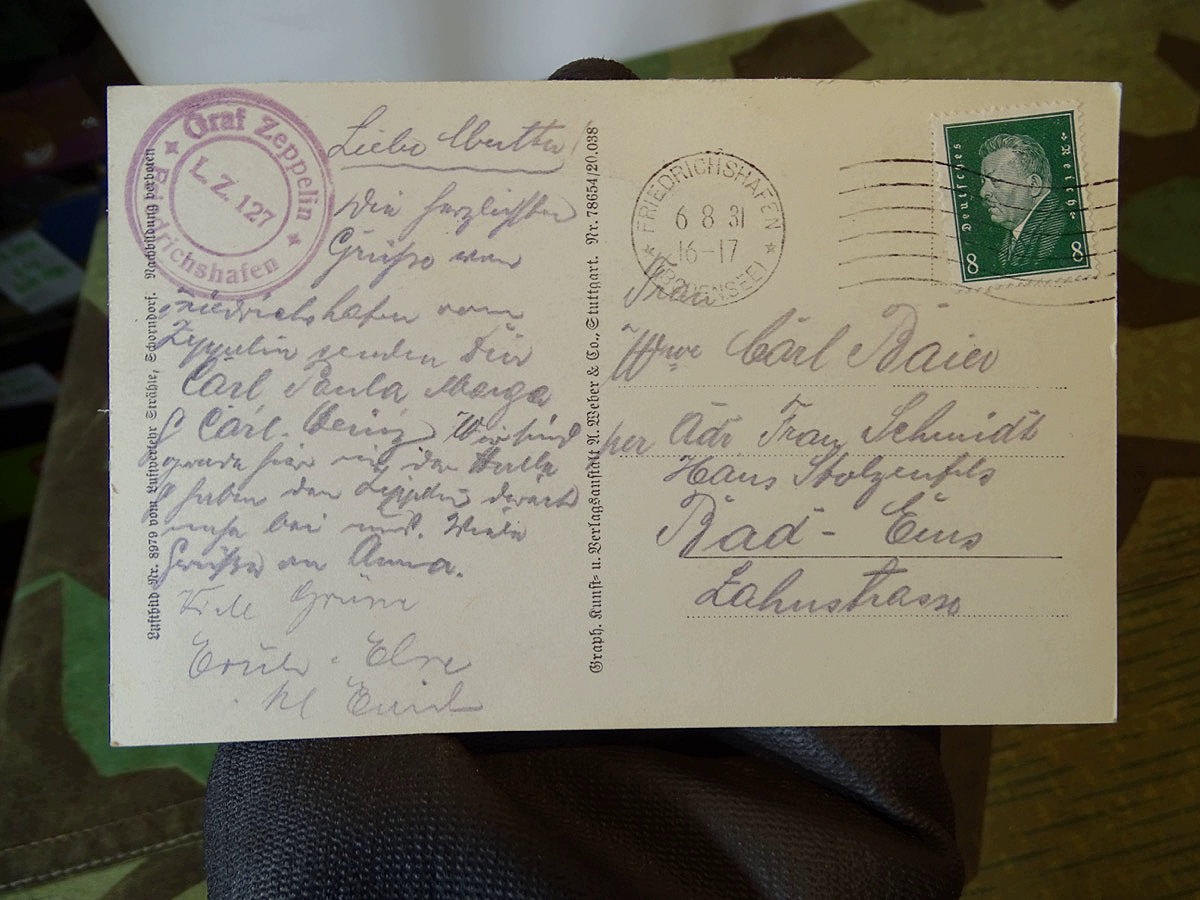 Graf Zeppelin
L. Z. 127
Friedrichshafen
Luftbild-Nr. 8979 vom Luftverkehr Strähle, Schorndorf. Nachbildung verboten
Liebe Mutter!
Die herzlichsten
Grüße von
Friedrichshafen vom
Zeppelin senden Dir
Carl Paula Marga
Carl. Wir sind
grade hier in der Halle
haben den Zeppelin
nahe bei uns. Viele
Grüße an Anna.
Viele Grüsse
Else
kl
Graph. Kunst- u. Verlagsanstalt A. Weber & Co., Stuttgart. Nr. 78654/20.038
FRIEDRICHSHAFEN
6 8 31
16-17
(BODENSEE)
Deutsches Reich
8 8
Frau
Wwe Carl Baier
per Adr Frau Schmidt
Haus Stolzenfels
Bad-Ems